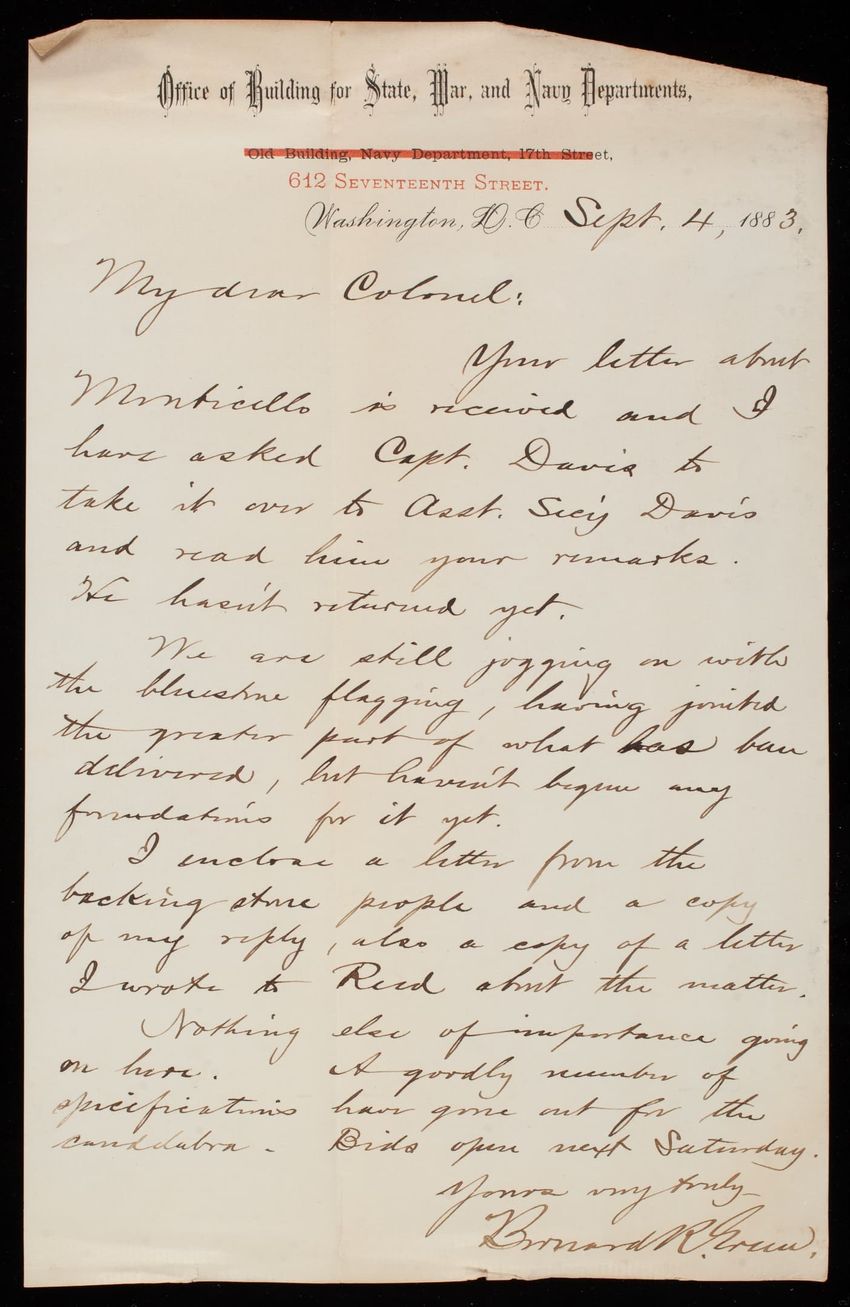 Office of Building for State, War, and Navy Departments,
Old Building, Navy Department, 17th Street,
612 Seventeenth Street.
Washington, D.C. Sept. 4, 1883.
My dear Colonel:
Your letter about
Monticello is received and I
have asked Capt. Davis to
take it over to Asst. Sec'y Davis
and read him your remarks.
He hasn't returned yet.
We are still jogging on with
the bluestone flagging, having jointed
the greater part of what has been
delivered, but haven't begun any
foundations for it yet.
I enclose a letter from the
backing stone people and a copy
of my reply, also a copy of a letter
I wrote to Reed about the matter.
Nothing else of importance going
on here. A goodly number of
specifications have gone out for the
candelabra. Bids open next Saturday.
Yours very truly
Bernard R. Green.